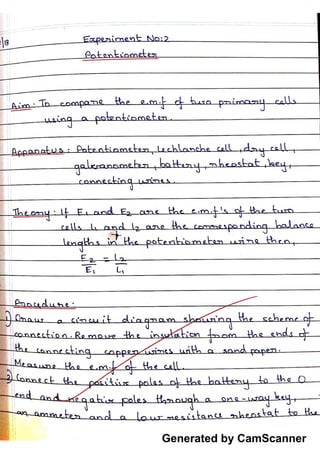 /8
Experiment No:2
Potentiometer
Aim: To compare the e.m.f of two primary cells
using a potentiometer.
Apparatus: Potentiometer, Lechlanche cell, dry cell,
galvanometer, battery, rheostat, key,
connecting wires.
Theory: If E1 and E2 are the e.m.f's of the two
cells l1 and l2 are the corresponding balance
lengths in the potentiometer wire then,
E2 = L2
E1 L1
Procedure:
1) Draw a circuit diagram showing the scheme of
connection. Remove the insulation from the ends of
the connecting copper wires with a sand paper.
Measure the e.m.f of the cell.
2) Connect the positive poles of the battery to the 0
end and negative poles through a one-way key,
an ammeter and a low resistance rheostat to the
Generated by CamScanner